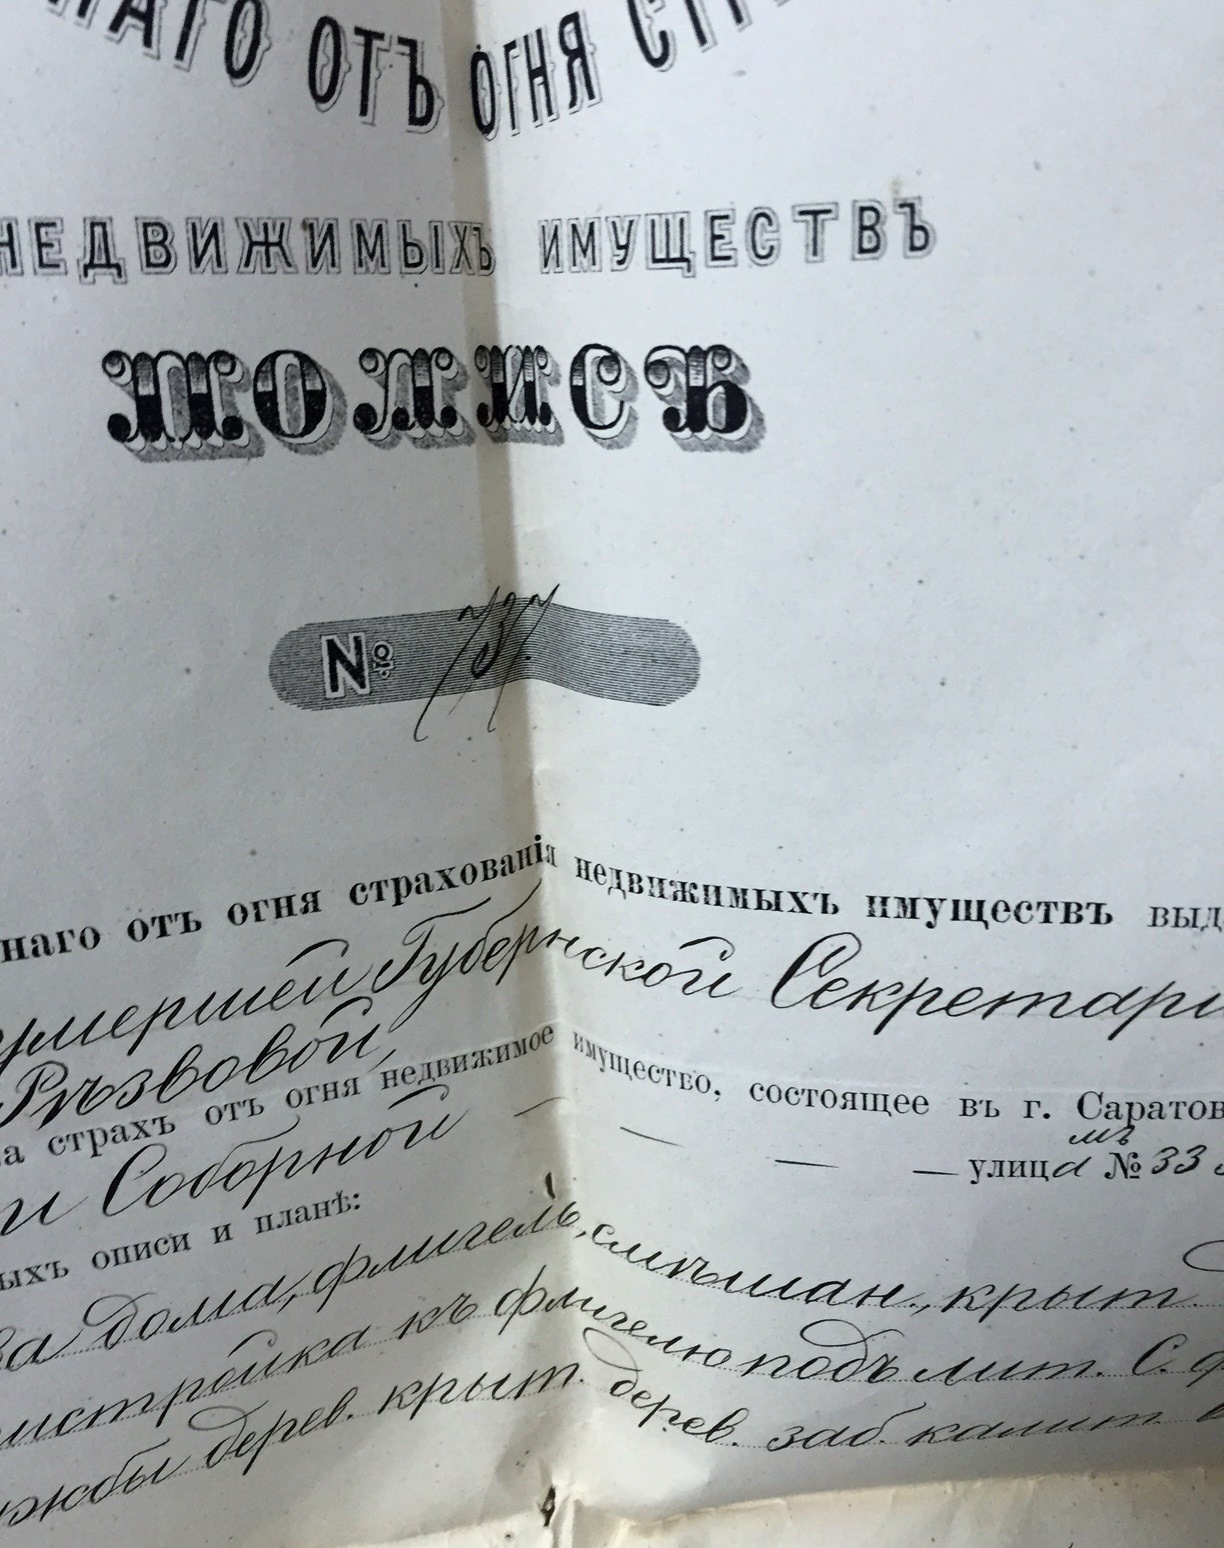 НАГО ОТЪ ОГНЯ СТР
НЕДВИЖИМЫХЪ ИМУЩЕСТВЪ
ПОЛИСЪ
№ 737.
наго отъ огня страхованія недвижимыхъ имуществъ выд
умершей Губернской Секретари
Рѣзвовой,
а страхъ отъ огня недвижимое имущество, состоящее въ г. Саратов
и Соборной — — — — улицамъ № 33
ыхъ описи и планѣ:
ва дома, флигель, смѣшан., крыт.
истройка къ флигелю подъ лит. С. ф
ужбы дерев. крыт. дерев. заб. калит. в